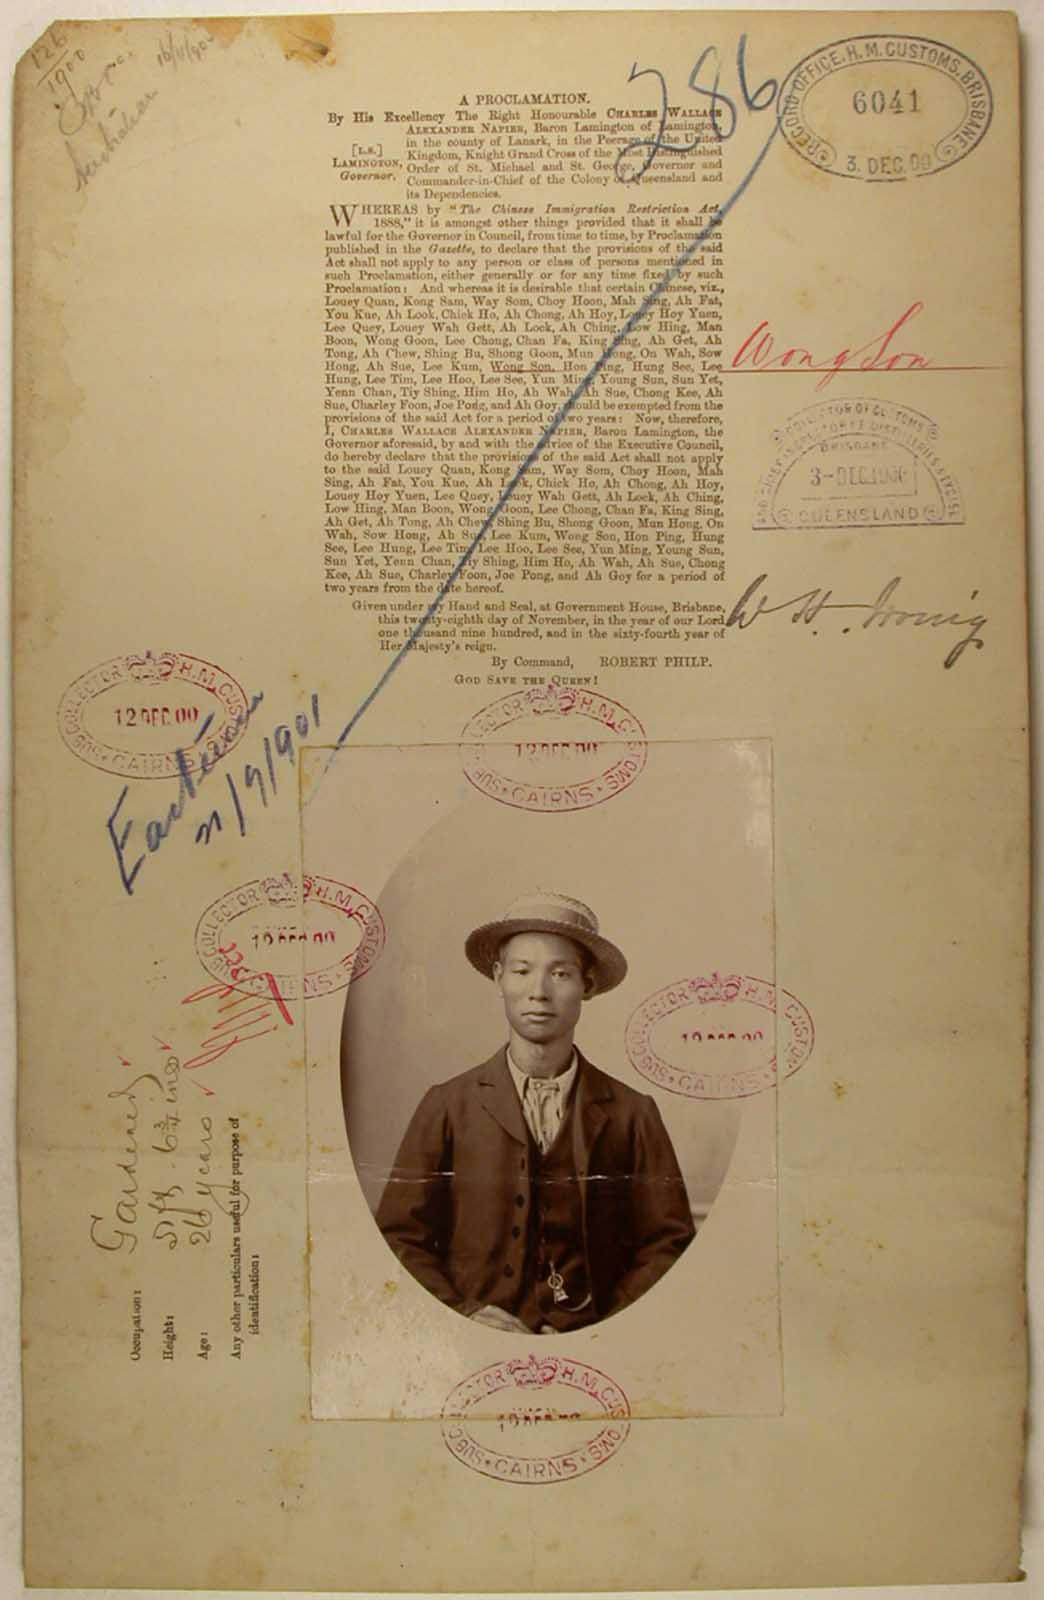 126
1900
Australian
16/11/900
286
RECORD OFFICE, H. M. CUSTOMS, BRISBANE
6041
3. DEC. 00
A PROCLAMATION.
By His Excellency The Right Honourable CHARLES WALLACE
ALEXANDER NAPIER, Baron Lamington of Lamington,
in the county of Lanark, in the Peerage of the United
Kingdom, Knight Grand Cross of the Most Distinguished
Order of St. Michael and St. George, Governor and
Commander-in-Chief of the Colony of Queensland and
its Dependencies.
[L.S.]
LAMINGTON,
Governor.
WHEREAS by "The Chinese Immigration Restriction Act,
1888," it is amongst other things provided that it shall be
lawful for the Governor in Council, from time to time, by Proclamation
published in the Gazette, to declare that the provisions of the said
Act shall not apply to any person or class of persons mentioned in
such Proclamation, either generally or for any time fixed by such
Proclamation: And whereas it is desirable that certain Chinese, viz.,
Louey Quan, Kong Sam, Way Som, Choy Hoon, Mah Sing, Ah Fat,
You Kue, Ah Look, Chick Ho, Ah Chong, Ah Hoy, Louey Hoy Yuen,
Lee Quey, Louey Wah Gett, Ah Lock, Ah Ching, Low Hing, Man
Boon, Wong Goon, Lee Chong, Chan Fa, King Sing, Ah Get, Ah
Tong, Ah Chew, Shing Bu, Shong Goon, Mun Hong, On Wah, Sow
Hong, Ah Sue, Lee Kum, Wong Son, Hon Ping, Hung See, Lee
Hung, Lee Tim, Lee Hoo, Lee See, Yun Ming, Young Sun, Sun Yet,
Yenn Chan, Tiy Shing, Him Ho, Ah Wah, Ah Sue, Chong Kee, Ah
Sue, Charley Foon, Joe Pong, and Ah Goy, should be exempted from the
provisions of the said Act for a period of two years: Now, therefore,
I, CHARLES WALLACE ALEXANDER NAPIER, Baron Lamington, the
Governor aforesaid, by and with the advice of the Executive Council,
do hereby declare that the provisions of the said Act shall not apply
to the said Louey Quan, Kong Sam, Way Som, Choy Hoon, Mah
Sing, Ah Fat, You Kue, Ah Look, Chick Ho, Ah Chong, Ah Hoy,
Louey Hoy Yuen, Lee Quey, Louey Wah Gett, Ah Lock, Ah Ching,
Low Hing, Man Boon, Wong Goon, Lee Chong, Chan Fa, King Sing,
Ah Get, Ah Tong, Ah Chew, Shing Bu, Shong Goon, Mun Hong, On
Wah, Sow Hong, Ah Sue, Lee Kum, Wong Son, Hon Ping, Hung
See, Lee Hung, Lee Tim, Lee Hoo, Lee See, Yun Ming, Young Sun,
Sun Yet, Yenn Chan, Tiy Shing, Him Ho, Ah Wah, Ah Sue, Chong
Kee, Ah Sue, Charley Foon, Joe Pong, and Ah Goy for a period of
two years from the date hereof.
Given under my Hand and Seal, at Government House, Brisbane,
this twenty-eighth day of November, in the year of our Lord
one thousand nine hundred, and in the sixty-fourth year of
Her Majesty's reign.
By Command, ROBERT PHILP.
GOD SAVE THE QUEEN!
Wong Son
COLLECTOR OF CUSTOMS
BRISBANE
3-DEC.1900
QUEENSLAND
W H.
SUB COLLECTOR H.M. CUSTOMS
12 DEC 00
CAIRNS
SUB COLLECTOR H.M. CUSTOMS
12 DEC 00
CAIRNS
/9/1901
SUB COLLECTOR H.M. CUSTOMS
12 DEC 00
CAIRNS
SUB COLLECTOR H.M. CUSTOMS
12 DEC 00
CAIRNS
Occupation: Gardener
Height: 5 ft. 6 3/4 ins
Age: 26 years
Any other particulars useful for purpose of
identification:
SUB COLLECTOR H.M. CUSTOMS
12 DEC 00
CAIRNS